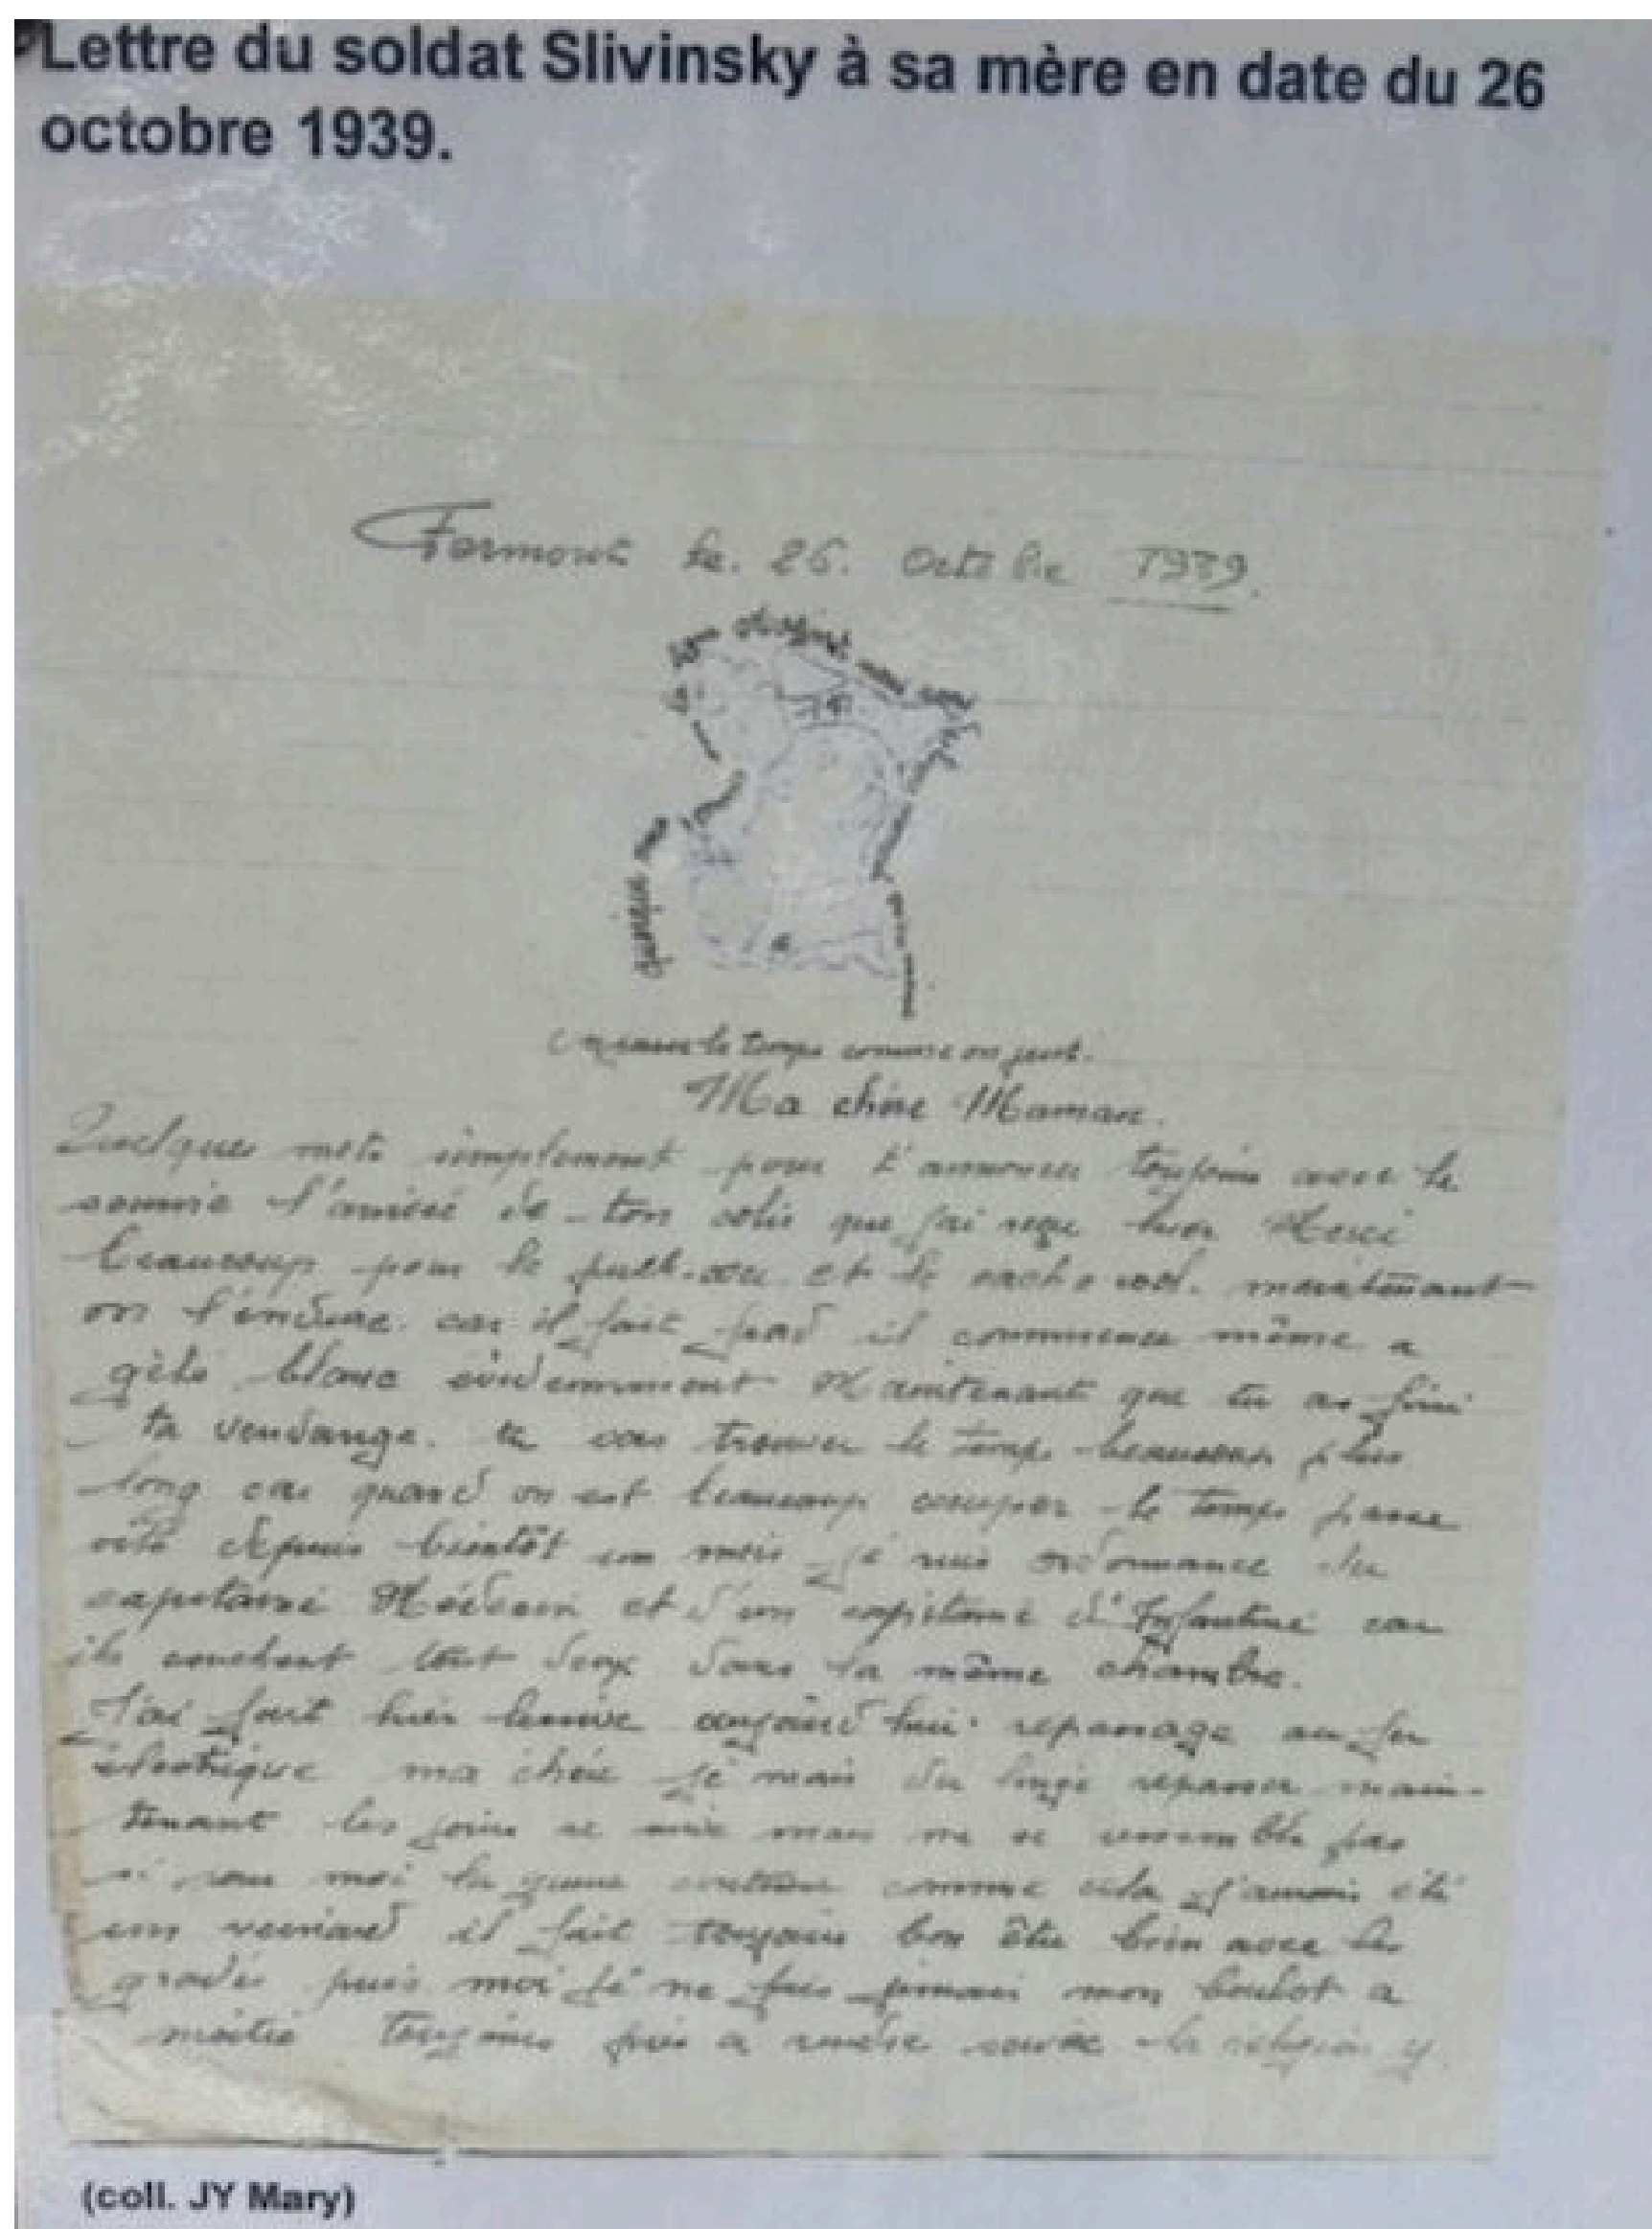 Lettre du soldat Slivinsky à sa mère en date du 26
octobre 1939.
Fermont le. 26. Octobre 1939.
quoique nous
passe le temps comme on peut.
Ma chère Maman.
Quelques mots simplement pour t'annoncer toujours avec le
sourire l'arrivé de ton colis que j'ai reçu hier Merci
beaucoup pour le pull-over et le cache col. maintenant
on l'endure car il fait froid il commence même a
gelé blanc évidemment Maintenant que tu as fini
ta vendange. tu vas trouver le temps beaucoup plus
long car quand on est beaucoup occuper le temps passe
vite depuis bientôt un mois je suis ordonnance du
capitaine Médecin et d'un capitaine d'Infanterie car
ils couchent tout deux dans la même chambre.
J'ai fait hier lessive aujourd'hui repassage au fer
électrique ma chère je mais du linge repasser main-
tenant les jours se suive mais ne se ressemble pas
si pour moi la guerre continue comme cela j'aurais été
un veinard il fait toujours bon être bien avec les
gradés puis moi je ne fais jamais mon boulot a
moitié toujours près a rendre service la religion y
(coll. JY Mary)